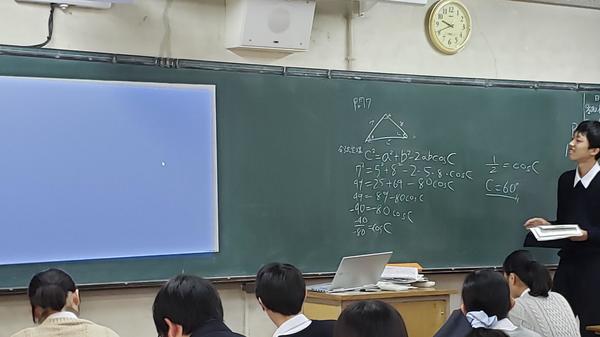 P.77
余弦定理
C²=a²+b²-2abcosC
7²=5²+8²-2·5·8·cosC
49=25+64-80cosC
49=89-80cosC
-40=-80cosC
-40/-80=cosC
1/2=cosC
C=60°